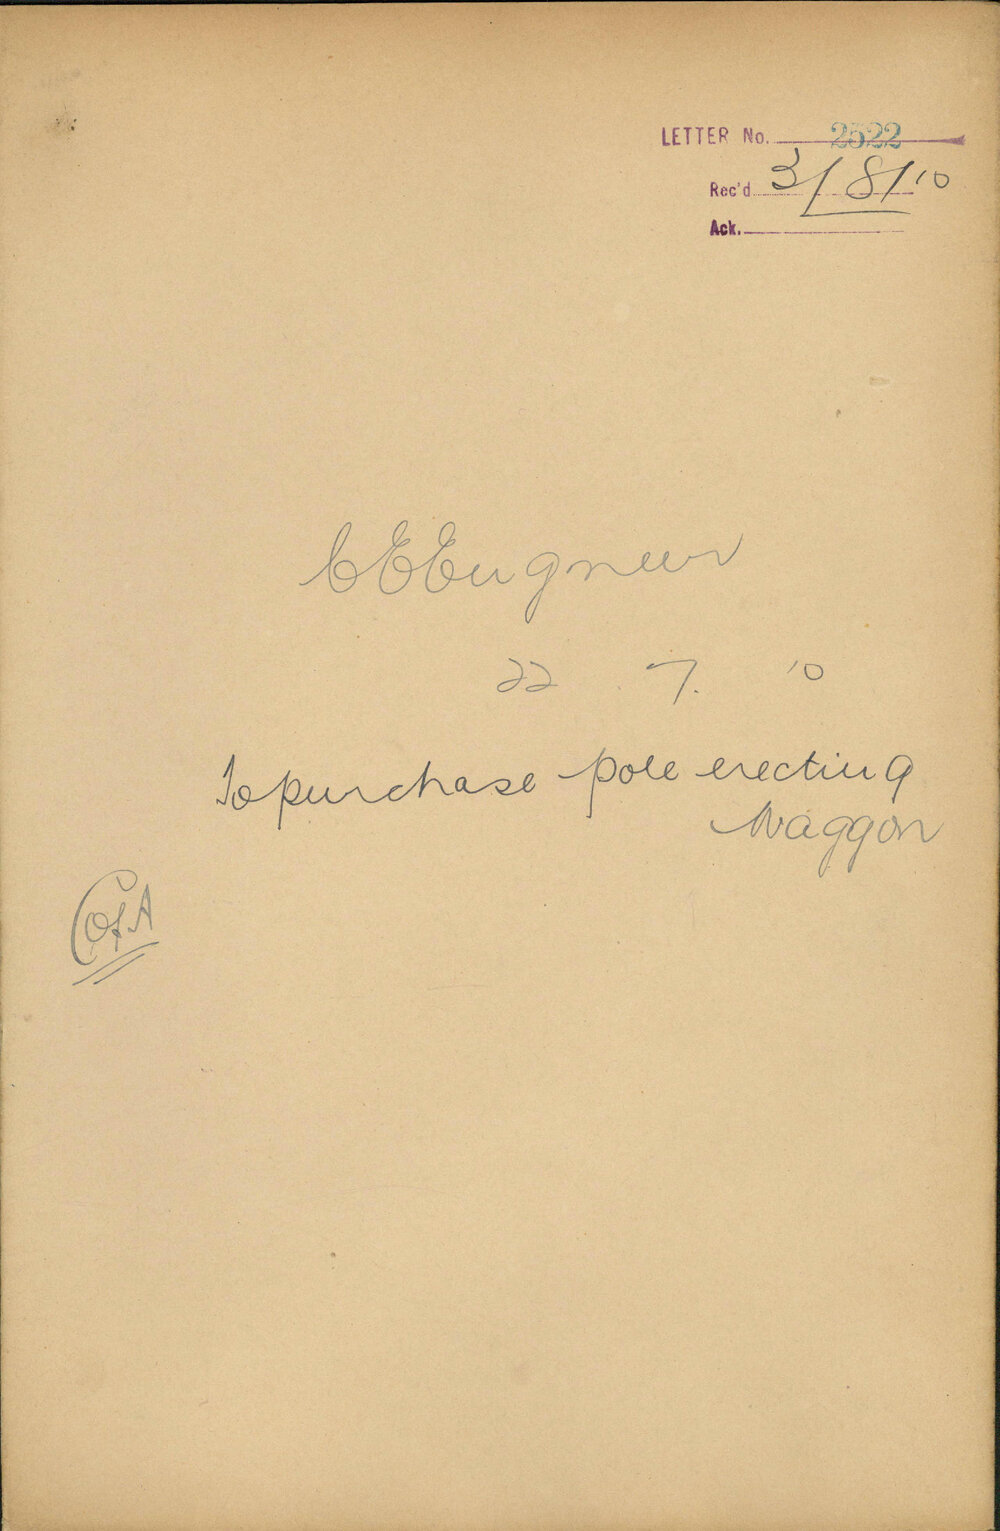 LETTER No. 2522
Rec'd 3/8/10
Ack.
C E Engineer
22 7. 10
To purchase pole erecting
Waggon
C of A